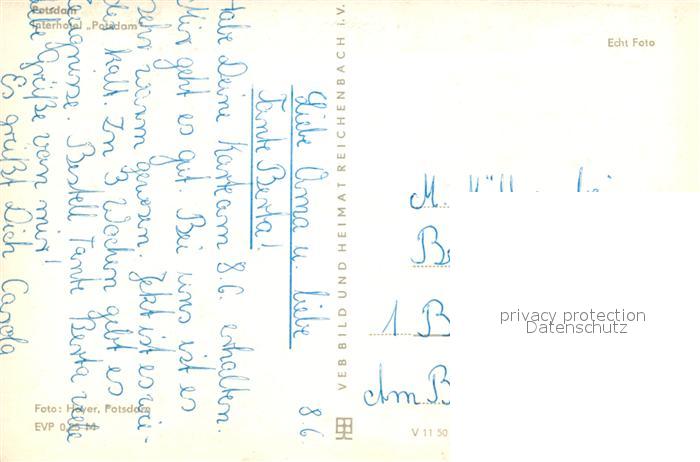 Potsdam
Interhotel „Potsdam"
8.6.
Liebe Oma u. liebe
Tante Berta!
Habe Deine Karte am 8.6. erhalten.
Mir geht es gut. Bei uns ist es
sehr warm gewesen. Jetzt ist es wie-
der kalt. In 3 Wochen gibt es
Zeugnisse. Bestell Tante Berta viele
Grüße von mir!
Es grüßt Dich Carola
Foto: Hoyer, Potsdam
EVP 0,25 M
VEB BILD UND HEIMAT REICHENBACH I. V.
Echt Foto
M.
1 B
Am B
V 11 50
privacy protection
Datenschutz